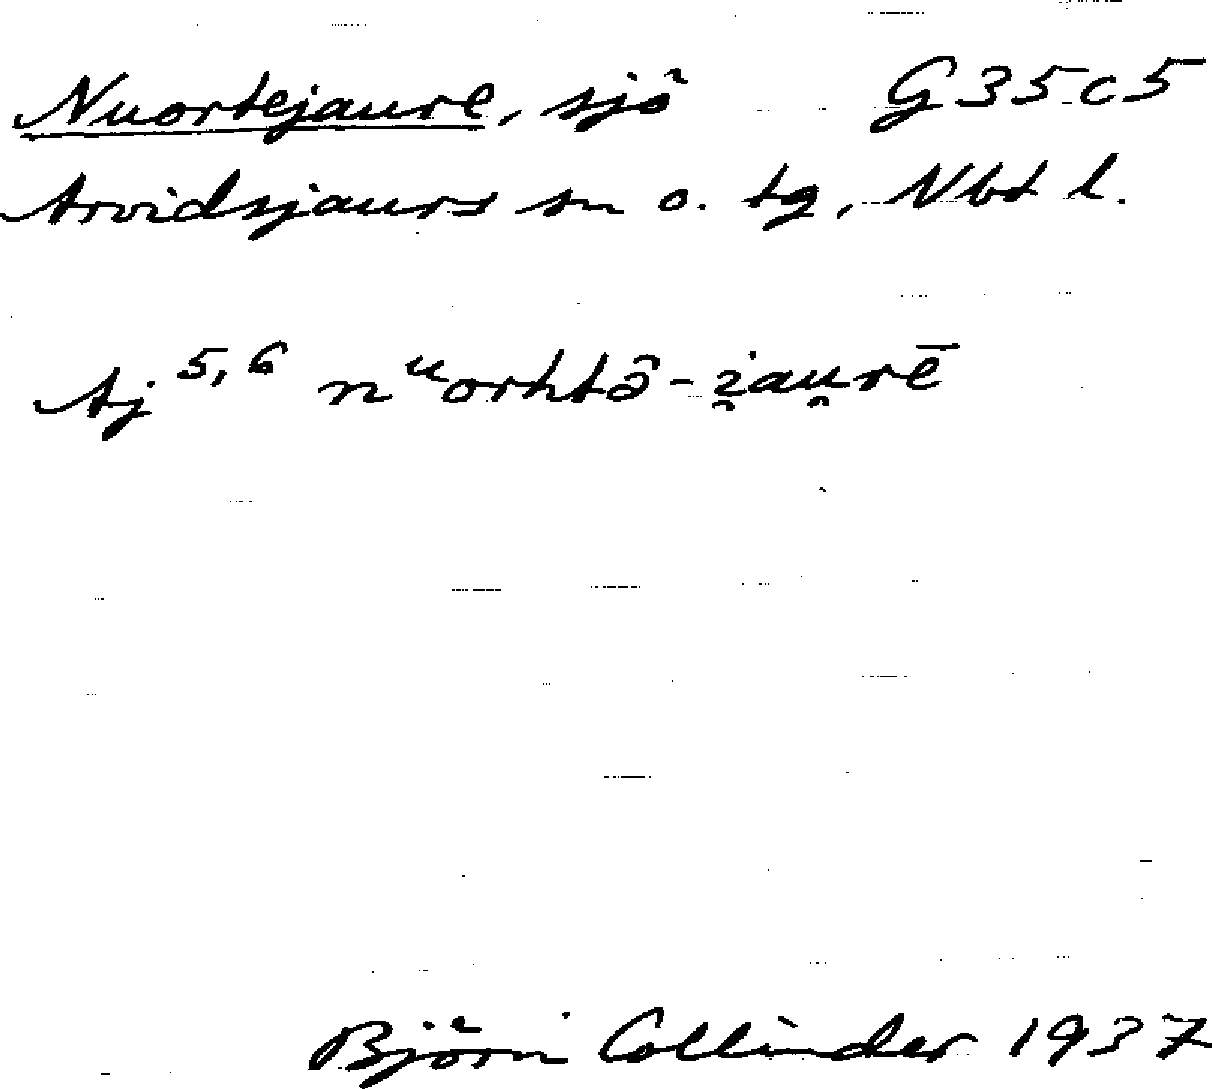 Nuortejaure, sjö G35c5
Arvidsjaurs sn o. tg, Nbt l.
Aj 5,6 nᵘorhtə̑-i̯au̯rē
Björn Collinder 1937